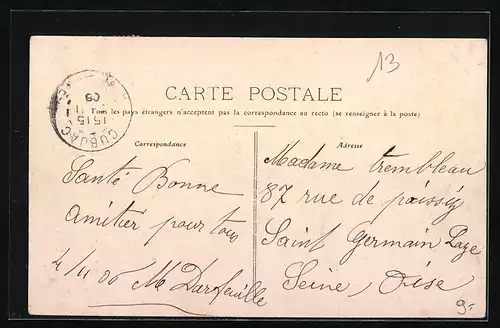 13
CARTE POSTALE
Tous les pays étrangers n'acceptent pas la correspondance au recto (se renseigner à la poste)
CUBJAC
15 15
Correspondance
Santé Bonne
amitier pour tous
4/11 06 M Darfeuille
Adresse
Madame trembleau
87 rue de poissÿ
Saint Germain Laye
Seine, Oise
9-